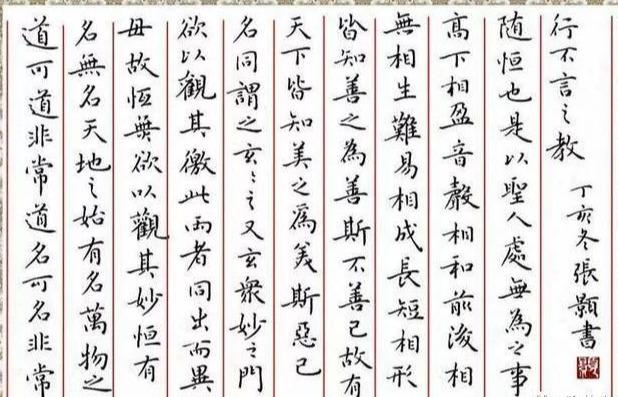 道可道非常道名可名非常
名無名天地之始有名萬物之
母故恆無欲以觀其妙恒有
欲以觀其徼此兩者同出而異
名同謂之玄〻之又玄衆妙之門
天下皆知美之為美斯惡已
皆知善之為善斯不善已故有
無相生難易相成長短相形
高下相盈音聲相和前後相
随恒也是以聖人處無為之事
行不言之教
丁亥冬張書